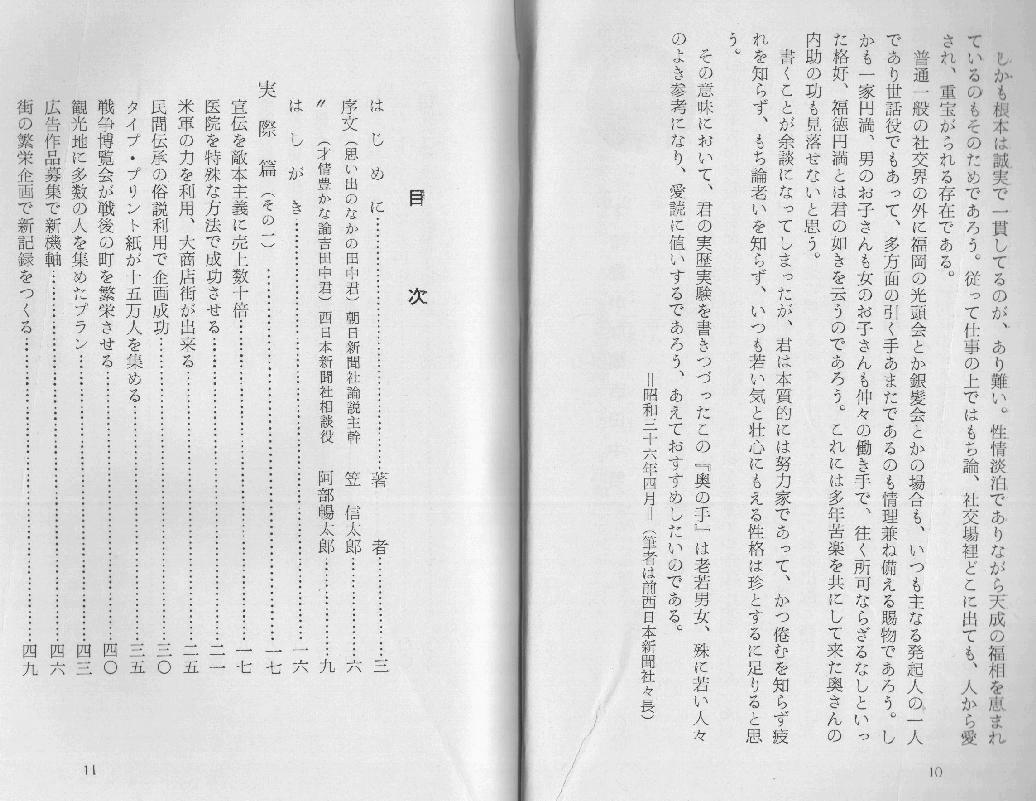 しかも根本は誠実で一貫してるのが、あり難い。性情淡泊でありながら天成の福相を恵まれ
ているのもそのためであろう。従って仕事の上ではもち論、社交場裡どこに出ても、人から愛
され、重宝がられる存在である。
普通一般の社交界の外に福岡の光頭会とか銀髪会とかの場合も、いつも主なる発起人の一人
であり世話役でもあって、多方面の引く手あまたであるのも情理兼ね備える賜物であろう。し
かも一家円満、男のお子さんも女のお子さんも仲々の働き手で、往く所可ならざるなしといっ
た格好、福徳円満とは君の如きを云うのであろう。これには多年苦楽を共にして来た奥さんの
内助の功も見落せないと思う。
書くことが余談になってしまったが、君は本質的には努力家であって、かつ倦むを知らず疲
れを知らず、もち論老いを知らず、いつも若い気と壮心にもえる性格は珍とするに足りると思
う。
その意味において、君の実歴実験を書きつづったこの『奥の手』は老若男女、殊に若い人々
のよき参考になり、愛読に値いするであろう、あえておすすめしたいのである。
＝昭和三十六年四月＝（筆者は前西日本新聞社々長）
10
目次
はじめに……………著者……三
序文（思い出のなかの田中君）朝日新聞社論説主幹 笠信太郎……六
〃（才借豊かな諭吉田中君）西日本新聞社相談役 阿部暢太郎……九
はしがき……………一六
実際篇（その一）……………一七
宣伝を敵本主義に売上数十倍……………一七
医院を特殊な方法で成功させる……………二一
米軍の力を利用、大商店街が出来る……………二五
民間伝承の俗説利用で企画成功……………三〇
タイプ・プリント紙が十五万人を集める……………三五
戦争博覧会が戦後の町を繁栄させる……………四〇
観光地に多数の人を集めたプラン……………四三
広告作品募集で新機軸……………四六
街の繁栄企画で新記録をつくる……………四九
11